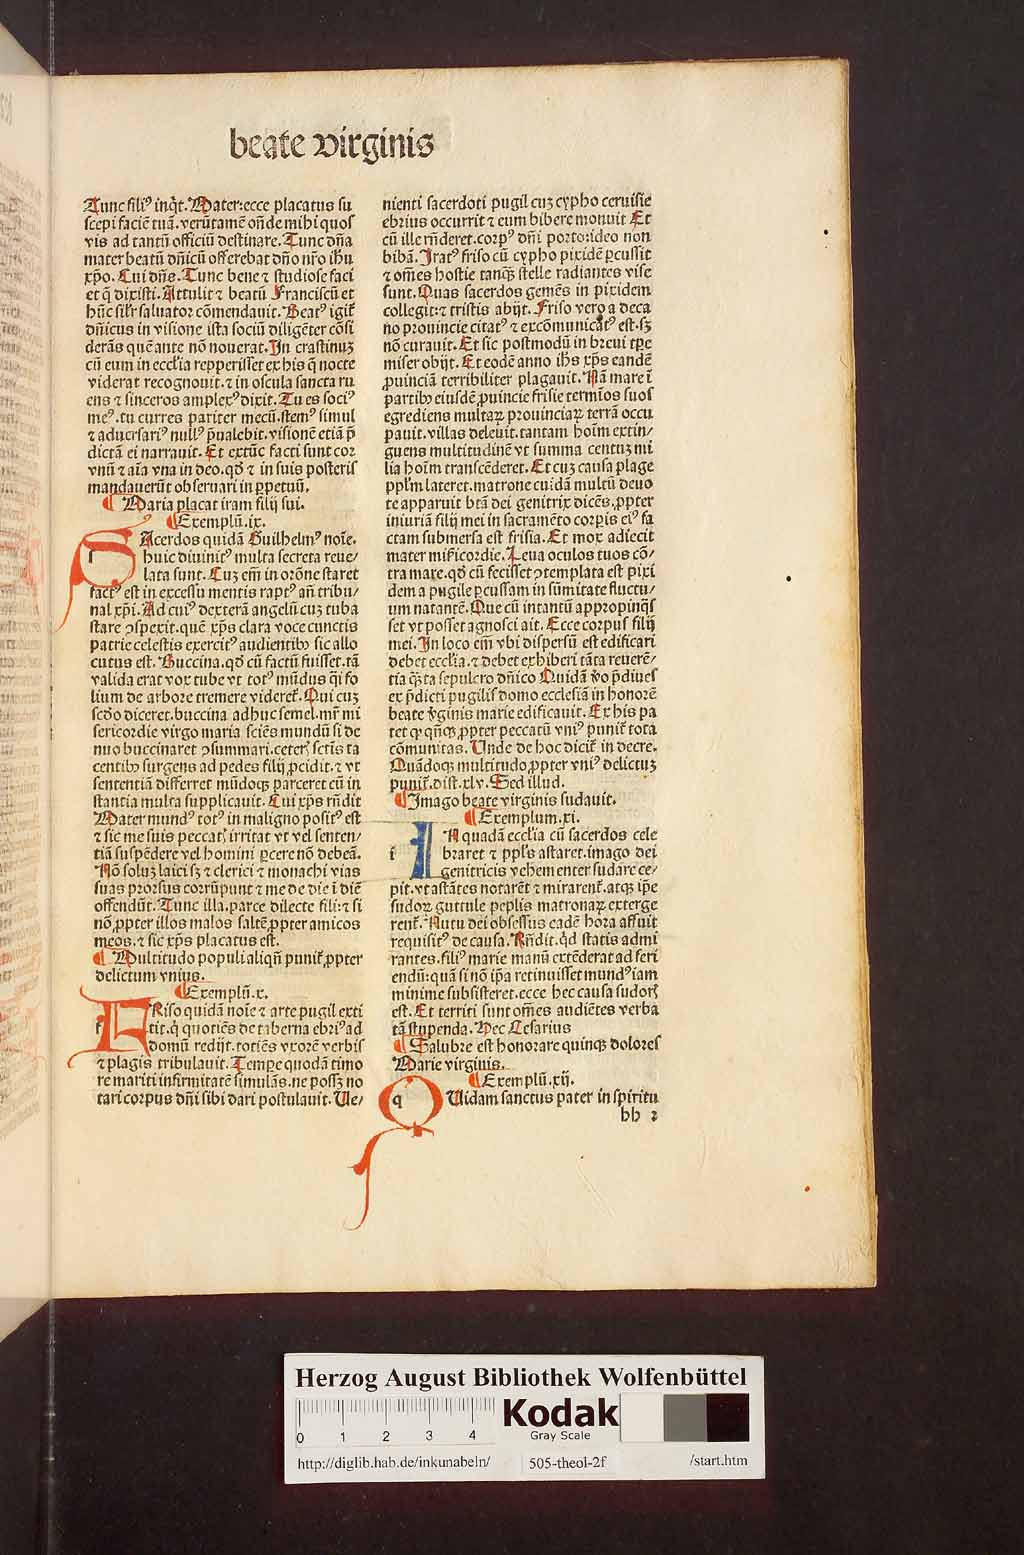 beate virginis
Tunc filiꝰ inqͥt. Mater: ecce placatus su
scepi faciē tuā. verūtamē oñde mihi quos
vis ad tantū officiū destinare. Tunc dña
mater beatū dñicū offerebat dño nr̄o ihu
xp̄o. Cui dñs. Tunc bene ⁊ studiose faci
et q̄ dixisti. Attulit ⁊ beatū Franciscū et
hūc silr̄ saluator cōmendauit. Beatꝰ igit̄
dñicus in visione ista sociū diligēter cōsi
derās quē ante nō nouerat. In crastinuꝫ
cū eum in eccl̄ia repperisset ex his q̄ nocte
viderat recognouit. ⁊ in oscula sancta ru
ens ⁊ sinceros amplexꝰ dixit. Tu es sociꝰ
meꝰ. tu curres pariter mecū. stemꝰ simul
⁊ aduersariꝰ nullꝰ p̄ualebit. visionē etiā p̄
dictā ei narrauit. Et extūc facti sunt cor
vnū ⁊ aīa vna in deo. qd̄ ⁊ in suis posteris
mandauerūt obseruari in ꝑpetuū.
¶ Maria placat iram filij sui.
¶ Exemplū. ix.
SAcerdos quidā Guilhelmꝰ noīe.
huic diuinitꝰ multa secreta reue/
lata sunt. Cuꝫ em̄ in orōne staret
factꝰ est in excessu mentis raptꝰ añ tribu/
nal xp̄i. Ad cuiꝰ dexterā angelū cuꝫ tuba
stare ꝯspexit. quē xp̄s clara voce cunctis
patrie celestis exercitꝰ audientibꝰ sic allo
cutus est. Buccina. qd̄ cū factū fuisset. tā
valida erat vox tube vt totꝰ mūdus qͥ fo
lium de arbore tremere videret̄. Qui cuꝫ
scd̄o diceret. buccina adhuc semel. mr̄ mi
sericordie virgo maria sciēs mundū si de
nuo buccinaret ꝯsummari. ceteꝭ sctīs ta
centibꝰ surgens ad pedes filij ꝓcidit. ⁊ vt
sententiā differret mūdoqꝫ parceret cū in
stantia multa supplicauit. Cui xp̄s rñdit
Mater mundꝰ totꝰ in maligno positꝰ est
⁊ sic me suis peccatꝭ irritat vt vel senten/
tiā suspēdere vel homini ꝑcere nō debeā.
Nō soluꝫ laici sꝫ ⁊ clerici ⁊ monachi vias
suas prorsus corrūpunt ⁊ me de die ī diē
offendūt. Tunc illa. parce dilecte fili: ⁊ si
nō ꝓpter illos malos saltē ꝓpter amicos
meos. ⁊ sic xp̄s placatus est.
¶ Multitudo populi aliqñ punit̄ ꝓpter
delictum vnius.
¶ Exemplū. x.
FRiso quidā noīe ⁊ arte pugil exti
tit. qͥ quotiēs de taberna ebriꝰ ad
domū redijt. totiēs vxorē verbis
⁊ plagis tribulauit. Tempe quodā timo
re mariti infirmitatē simulās. ne possꝫ no
tari corpus dñi sibi dari postulauit. Ue/
nienti sacerdoti pugil cuꝫ cypho ceruisie
ebrius occurrit ⁊ eum bibere monuit Et
cū ille rñderet. corpꝰ dñi porto: ideo non
bibā. Iratꝰ friso cū cypho pixidē ꝑcussit
⁊ om̄es hostie tanqꝫ stelle radiantes vise
sunt. Quas sacerdos gemēs in pixidem
collegit: ⁊ tristis abijt. Friso vero a deca
no prouincie citatꝰ ⁊ excōmunicatꝰ est. sꝫ
nō curauit. Et sic postmodū in breui tꝑe
miser obijt. Et eodē anno ihs xp̄s eandē
ꝓuinciā terribiliter plagauit. Nā mare ī
partibꝰ eiusdē ꝓuincie frisie termīos suos
egrediens multaꝝ prouinciaꝝ terrā occu
pauit. villas deleuit. tantam hoīm extin/
guens multitudinē vt summa centuꝫ mi
lia hoīm transcēderet. Et cuꝫ causa plage
ppl̄m lateret. matrone cuidā multū deuo
te apparuit btā dei genitrix dicēs. ꝓpter
iniuriā filij mei in sacramēto corpis eiꝰ fa
ctam submersa est frisia. Et mox adiecit
mater mīcordie. Leua oculos tuos cō/
tra mare. qd̄ cū fecisset ꝯtemplata est pixi
dem a pugile ꝑcussam in sūmitate fluctu/
um natantē. Que cū intantū appropinqͣs
set vt posset agnosci ait. Ecce corpus filij
mei. In loco em̄ vbi dispersū est edificari
debet eccl̄ia. ⁊ debet exhiberi tāta reuerē/
tia qͣꝫta sepulcro dñico Quidā v̄o p̄diues
ex p̄dicti pugilis domo ecclesiā in honorē
beate v̄ginis marie edificauit. Ex his pa
tet ꝙ qñqꝫ ꝓpter peccatū vniꝰ punit̄ tota
cōmunitas. Unde de hoc dicit̄ in decre.
Quādoqꝫ multitudo ꝓpter vniꝰ delictuꝫ
punit̄. dist. xlv. Sed illud.
¶ Imago beate virginis sudauit.
¶ Exemplum. xi.
IN quadā eccl̄ia cū sacerdos cele
braret ⁊ ppl̄s astaret. imago dei
genitricis vehementer sudare ce/
pit. vt astātes notarēt ⁊ mirarent̄. atqꝫ ip̄e
sudoꝝ guttule peplis matronaꝝ exterge
rent̄. Nutu dei obsessus eadē hora affuit
requisitꝰ de causa. Rñdit. qͥd statis admi
rantes. filiꝰ marie manū extēderat ad feri
endū: quā si nō ip̄a retinuisset mundꝰ iam
minime subsisteret. ecce hec causa sudorꝭ
est. Et territi sunt om̄es audiētes verba
tā stupenda. Hec Cesarius
¶ Salubre est honorare quinqꝫ dolores
Marie virginis.
¶ Exemplū. xij.
QUidam sanctus pater in spiritu
bb 2
Herzog August Bibliothek Wolfenbüttel
0 1 2 3 4
Kodak
Gray Scale
http://diglib.hab.de/inkunabeln/ 505-theol-2f /start.htm